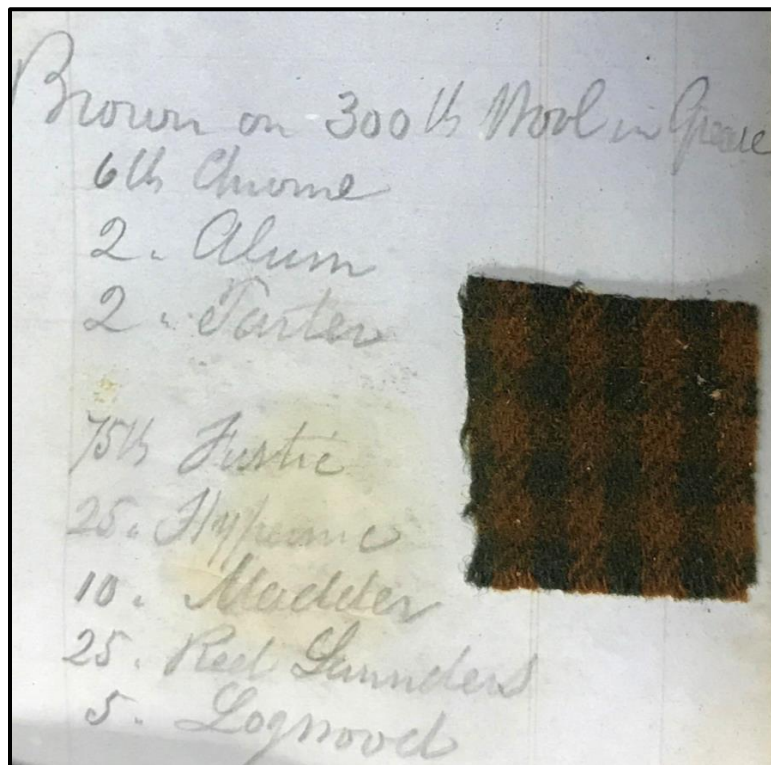 Brown on 300 lb Wool in Grease
6 lb Chrome
2. Alum
2. Tarter
75 lb Fustic
25. Hypernic
10. Madder
25. Red Saunders
5. Logwood